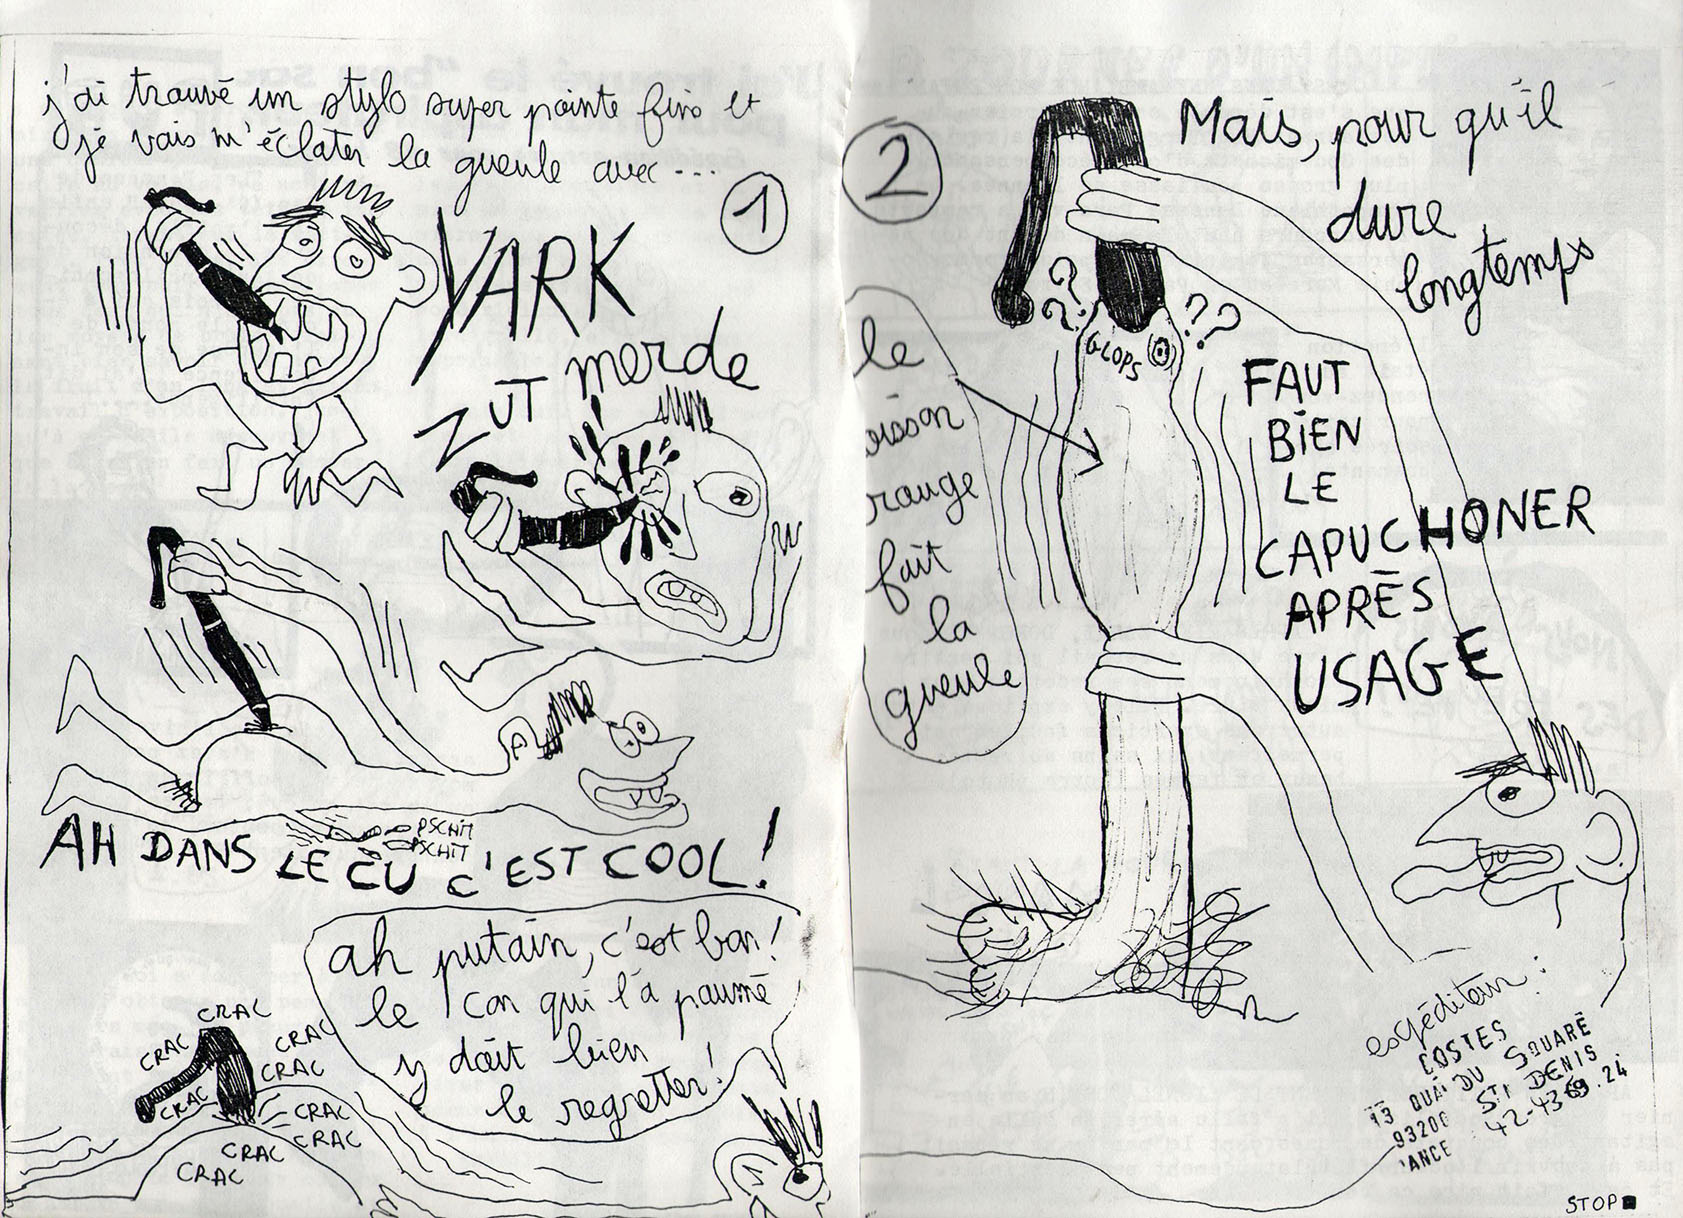 j'ai trouvé un stylo super pointe fine et
je vais m'éclater la gueule avec...
1
YARK
ZUT merde
PSCHIT
PSCHIT
AH DANS LE CU C'EST COOL!
ah putain, c'est bon!
le con qui l'a paumé
y doit bien
le regretter!
CRAC
CRAC
CRAC
CRAC
CRAC
CRAC
CRAC
CRAC
CRAC
2
Mais, pour qu'il
dure
longtemps
? ?
? ?
GLOPS
le
oisson
rouge
fait
la
gueule
FAUT
BIEN
LE
CAPUCHONER
APRÈS
USAGE
expéditeur :
COSTES
13 QUAI DU SQUARE
93200 ST DENIS
ANCE 42-43 69.24
STOP